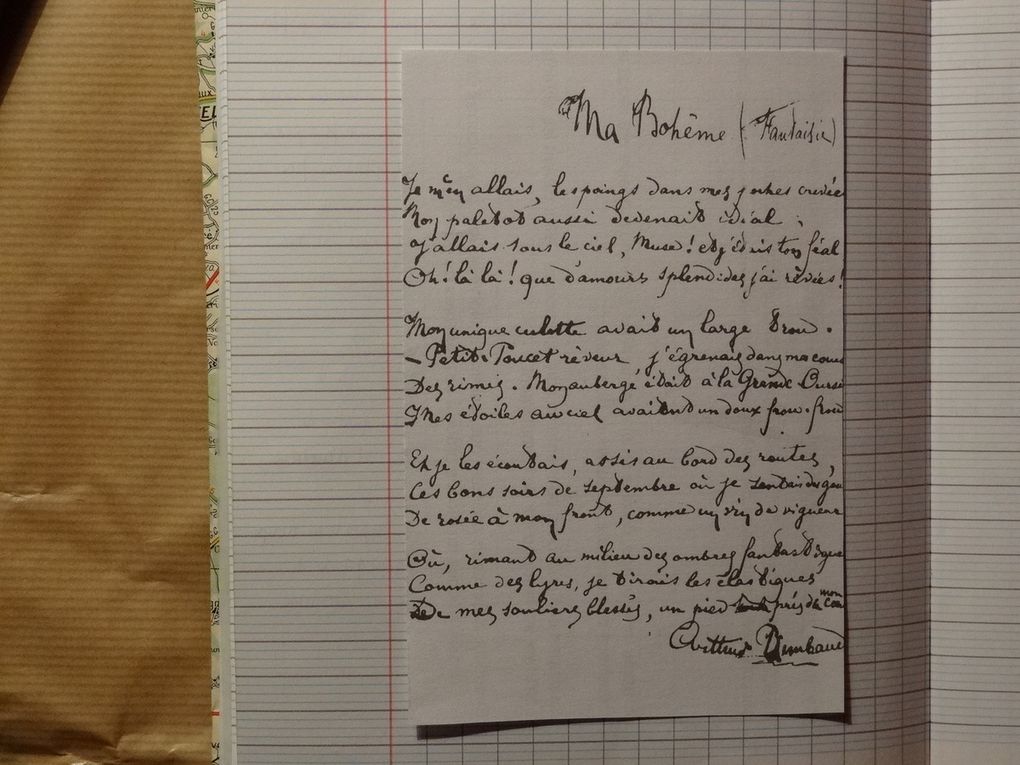 Ma Bohême (Fantaisie)
Je m'en allais, les poings dans mes poches crevée
Mon paletot aussi devenait idéal ;
J'allais sous le ciel, Muse ! et j'étais ton féal
Oh ! là là ! que d'amours splendides j'ai rêvées !
Mon unique culotte avait un large trou.
– Petit-Poucet rêveur, j'égrenais dans ma cours
Des rimes. Mon auberge était à la Grande Ourse
Mes étoiles au ciel avaient un doux frou-frou
Et je les écoutais, assis au bord des routes,
Ces bons soirs de septembre où je sentais des gou
De rosée à mon front, comme un vin de vigueur
Où, rimant au milieu des ombres fantastique
Comme des lyres, je tirais les élastiques
De mes souliers blessés, un pied près de mon cœu
Arthur Rimbaud